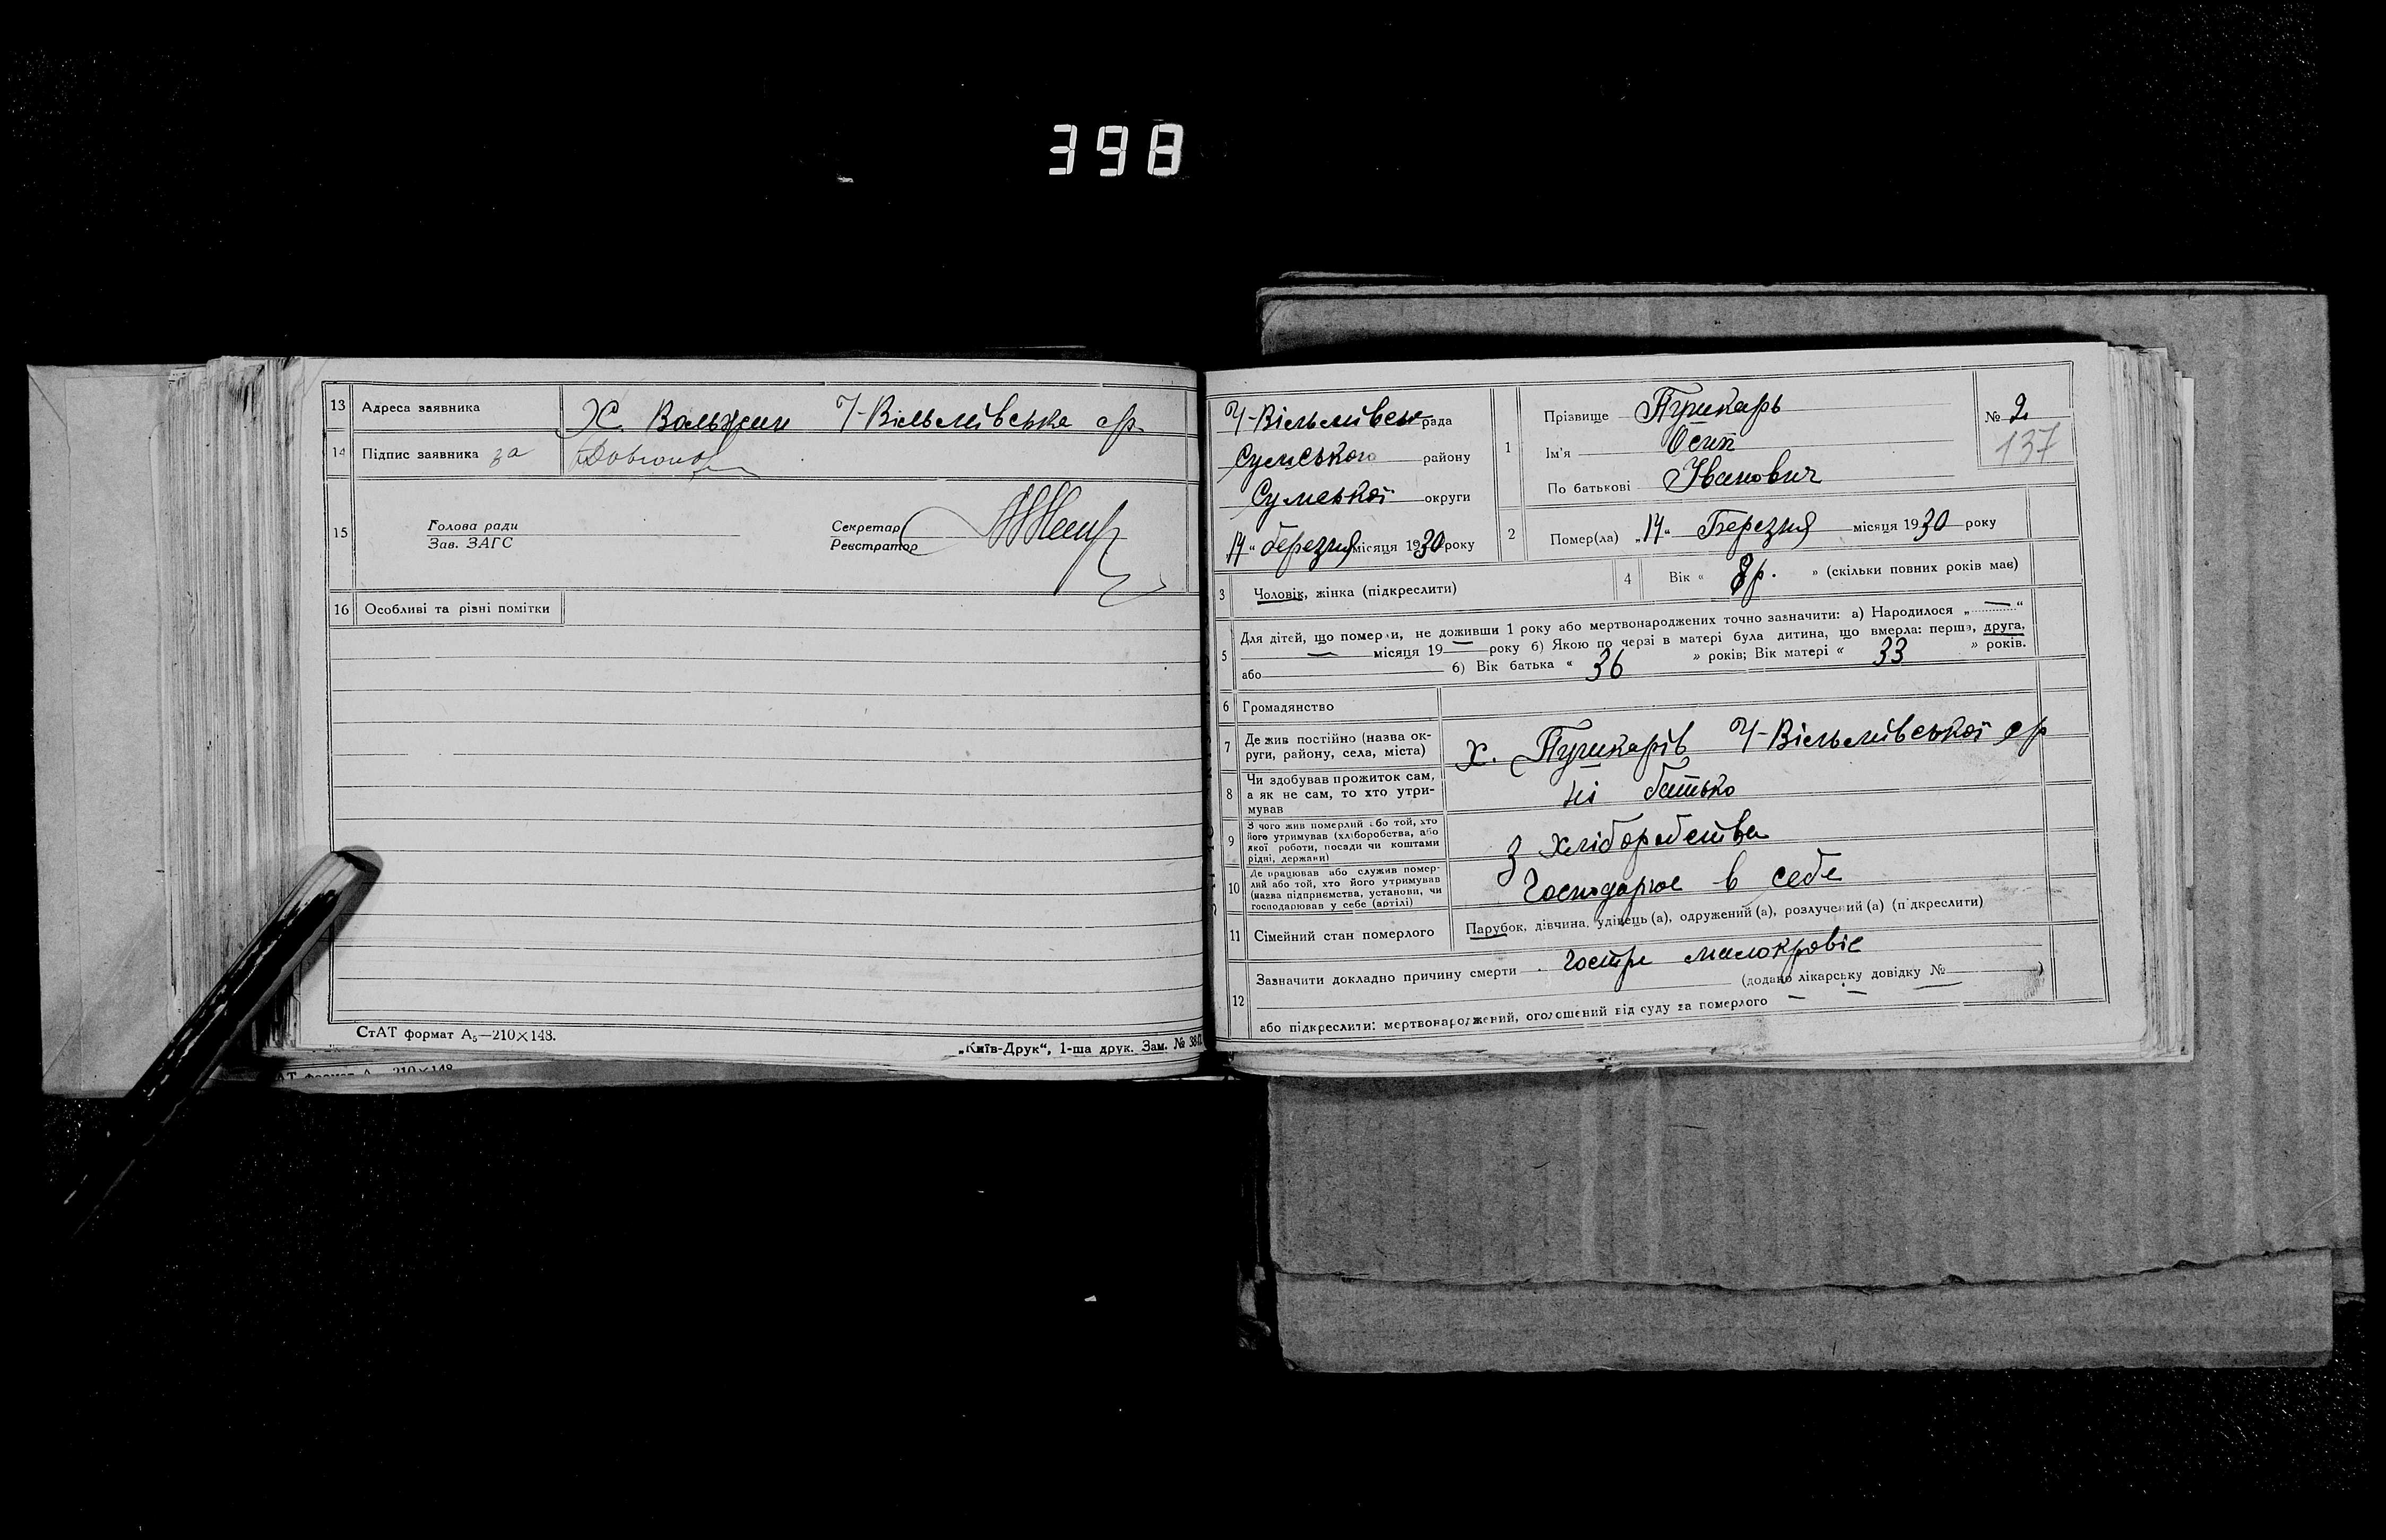 398
13 Адреса заявника Х. Вольжин Ч-Вільмівська ср
14 Підпис заявника за
15 Голова ради
Зав. ЗАГС
Секретар
Реєстратор
16 Особливі та різні помітки
СтАТ формат А₅—210×148.
„Київ-Друк“, 1-ша друк. Зам. №
210×148
Ч-Вільмівськ рада
Сумського району
Сумської округи
14 „ березня місяця 1930 року
1 Прізвище Пушкарь
Ім'я Осип
По батькові Іванович
№ 2
137
2 Помер(ла) „14“ Березня місяця 1930 року
3 Чоловік, жінка (підкреслити)
4 Вік « 8 р. » (скільки повних років має)
5 Для дітей, що померли, не доживши 1 року або мертвонароджених точно зазначити: а) Народилося „ — “
— місяця 19 — року б) Якою по черзі в матері була дитина, що вмерла: перша, друга,
або б) Вік батька « 36 » років; Вік матері « 33 » років.
6 Громадянство
7 Де жив постійно (назва округи, району, села, міста) х. Пушкарів Ч-Вільмівської ср
8 Чи здобував прожиток сам, а як не сам, то хто утримував ні батько
9 З чого жив померлий або той, хто його утримував (хліборобства, або якої роботи, посади чи коштами рідні, держави) З хліборобства
10 Де працював або служив помер-
лий або той, хто його утримував
(назва підприємства, установи, чи
господарював у себе (артілі) Господарює в себе
11 Сімейний стан померлого Парубок, дівчина, удівець (а), одружений (а), розлучений (а) (підкреслити)
12 Зазначити докладно причину смерти гостре малокровіє
(додано лікарську довідку № )
або підкреслити: мертвонароджений, оголошений від суду за померлого